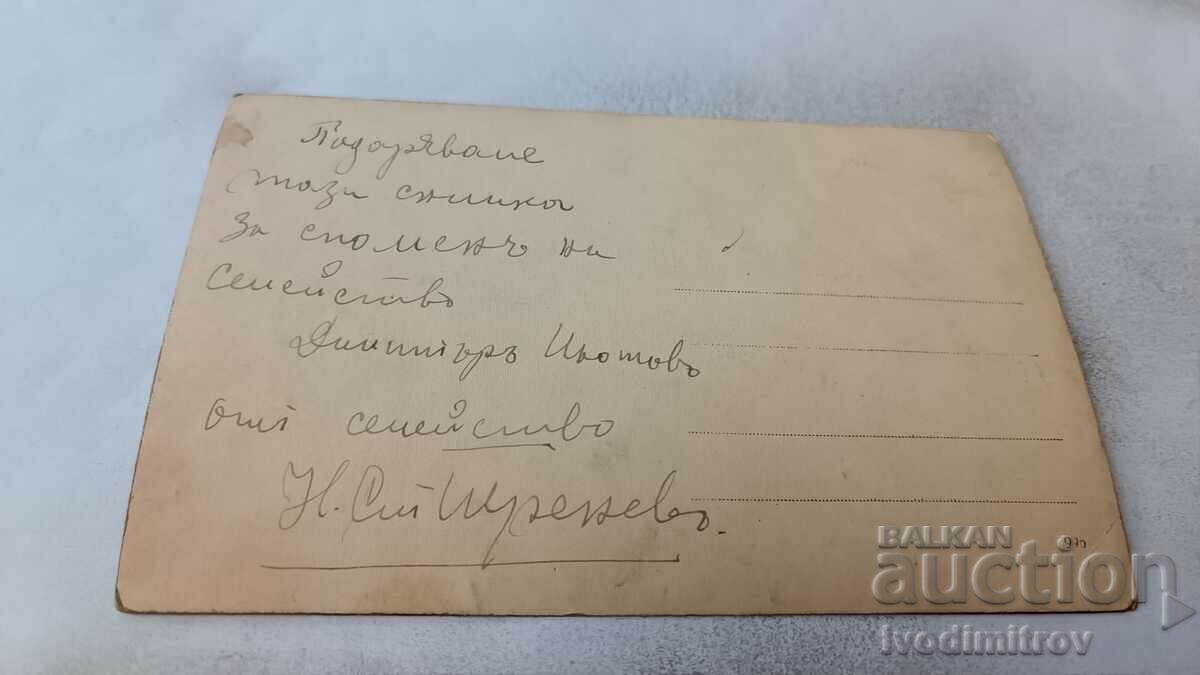 Подаряваме
тази снимка
За споменъ на
Семейство
Димитъръ
отъ семейство
Н. Ст.
BALKAN
auction
ivodimitrov